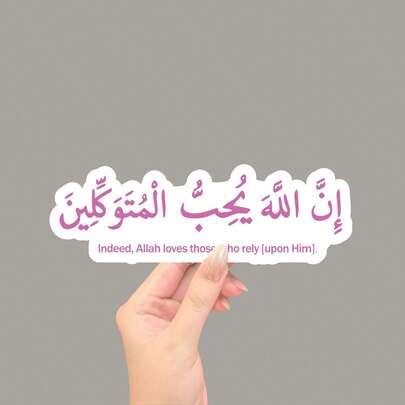 إِنَّ اللَّهَ يُحِبُّ الْمُتَوَكِّلِينَ
Indeed, Allah loves those who rely [upon Him].